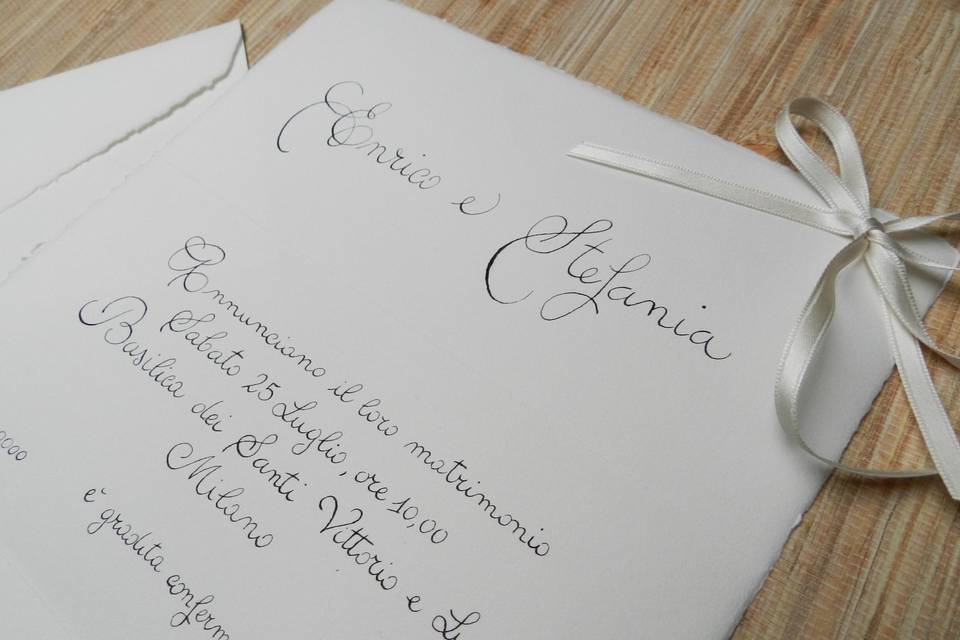 Enrico e
Stefania
Annunciano il loro matrimonio
Sabato 25 Luglio, ore 10,00
Basilica dei Santi Vittorio e
Milano
è gradita